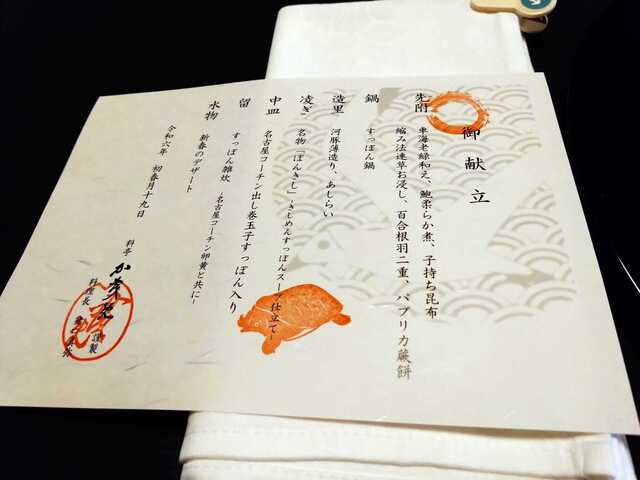 御献立
先附 東海老緑和え、鮑柔らか煮、子持ち昆布
縮み法連草お浸し、百合根羽二重、パプリカ蕨餅
鍋 すっぽん鍋
造里 河豚薄造り、あしらい
凌ぎ 名物「ぽんきし」~きしめんすっぽんスープ仕立て~
中皿 名古屋コーチン出し巻玉子すっぽん入り
留 すっぽん雑炊 ~名古屋コーチン卵黄と共に~
水物 新春のデザート
令和六年 初春月十九日
料亭
謹製
料理長